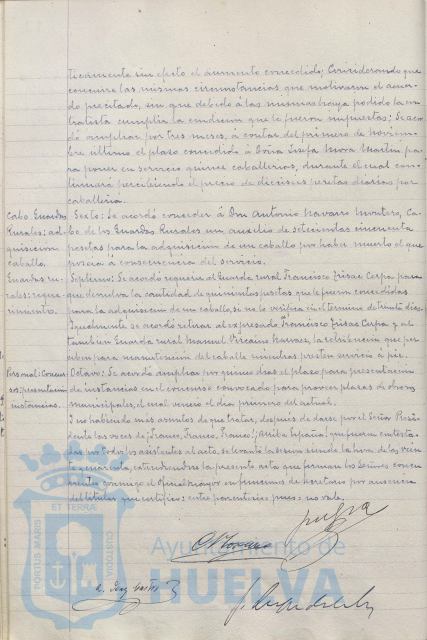 ticamente sin efecto el aumento concedido; Considerando que
concurre las mismas circunstancias que motivaron el acuer-
do precitado, sin que debido á las mismas haya podido la con-
tratista cumplir la que le fueron impuestas: Se acor-
dó ampliar por tres meses, á contar del primero de noviem-
bre último el plazo concedido á Doña Josefa Mora Martín pa-
ra poner en servicio quince caballerías, durante el cual con-
tinuará percibiendo el precio de dieciseis pesetas diarias por
caballería.
Cabo Guardas
Rurales; ad-
quisición
caballo.
Sexto: Se acordó conceder á Don Antonio Navarro Montero, Ca-
bo de los Guardas Rurales un auxilio de setecientas cincuenta
pesetas para la adquisición de un caballo por haber muerto el que
poseía á consecuencia del servicio.
Guardas ru-
rales: reque-
rimiento.
Séptimo: Se acordó requerir al Guarda rural Francisco Cerpa para
que devuelva la cantidad de quinientas pesetas que le fueron concedidas
para la adquisición de un caballo, si no lo verifica en el término de treinta días.
Igualmente se acordó retirar al expresado Francisco Cerpa y al
también Guarda rural Manuel Vizcaíno, la que per-
ciben para manutención del caballo mientras presten servicio á pié.
Personal: Concur-
sos, presentación
instancias.
Octavo: Se acordó ampliar por quince días el plazo para presentación
de instancias en el concurso convocado para proveer plazas de obreros
municipales, el cual venció el día primero del actual.
Y no habiendo más asuntos de que tratar, después de darse por el Señor Presi-
dente las voces de ¡Franco, Franco, Franco! ¡Arriba España! que fueron contesta-
das por todos los asistentes al acto, se levantó la sesión siendo la hora de las vein-
te y cuarenta, extendiéndose la presente acta que firman los Señores concu-
rrentes conmigo el Oficial Mayor en funciones de Secretario por ausencia
del titular que certifico: entre parentesis: pues: no vale.
PORTUS MARIS
ET TERRA
CUSTODIA
Ayuntamiento de
HUELVA